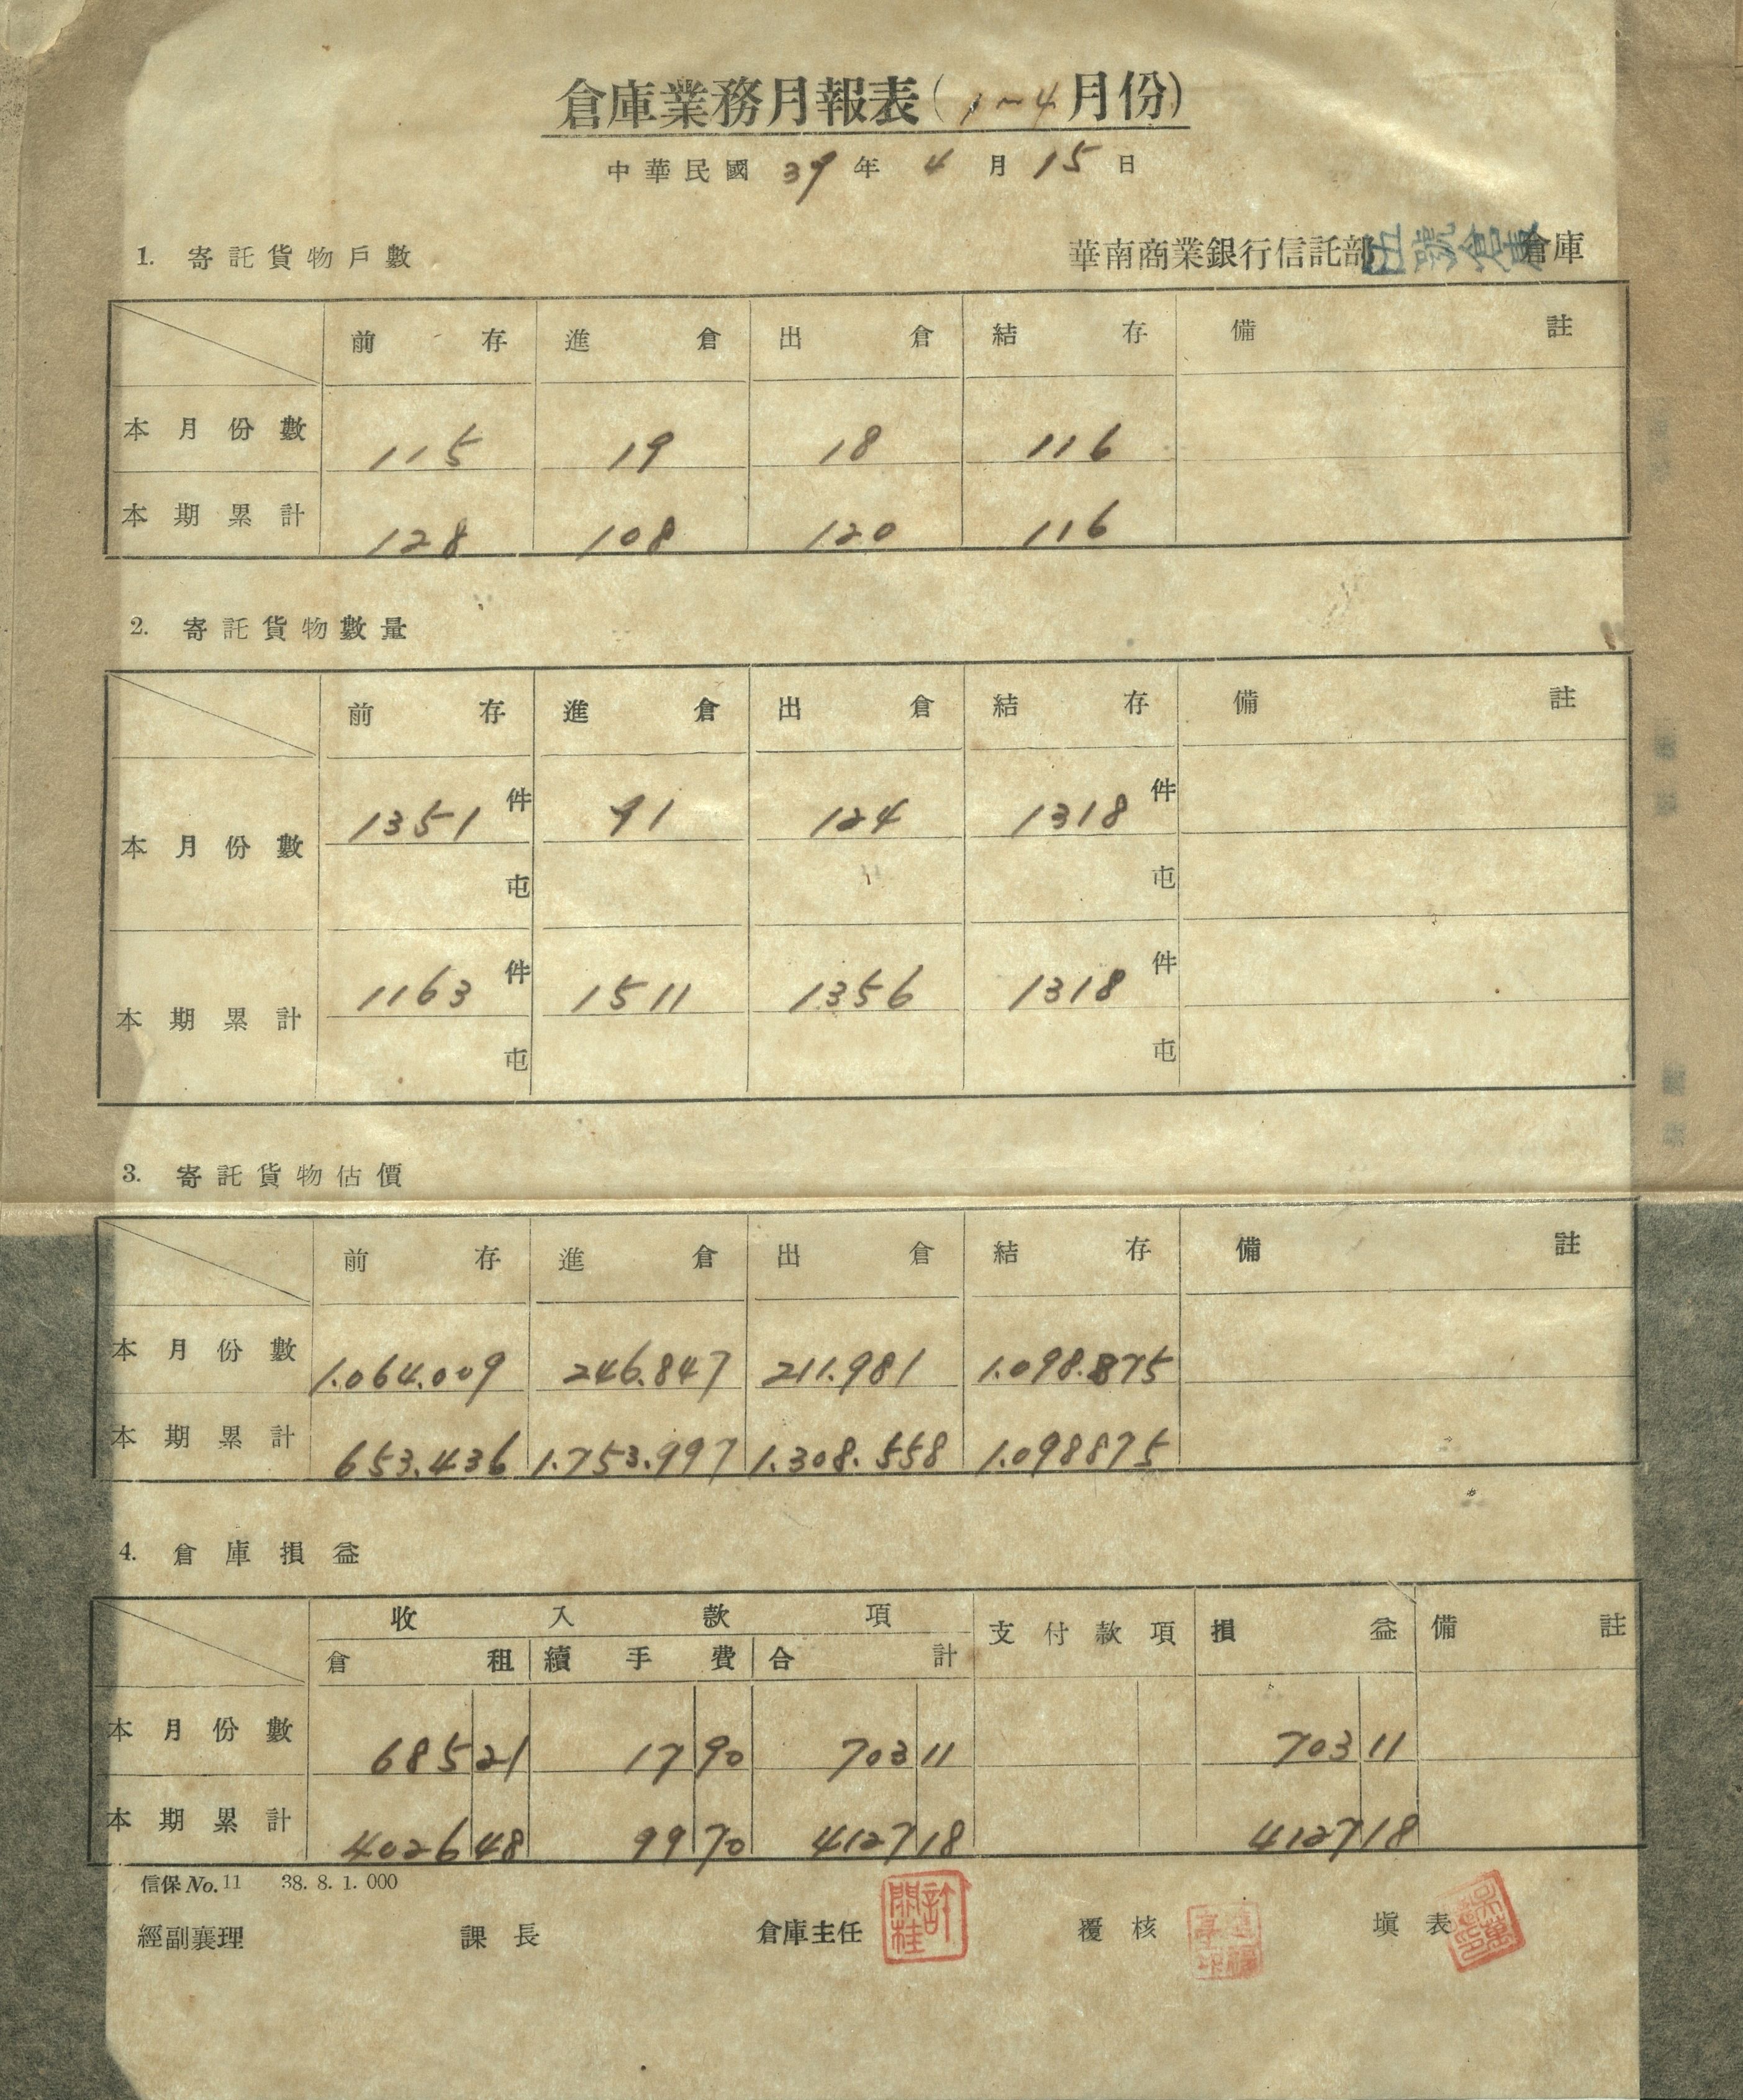 倉庫業務月報表(1~4月份)
中華民國39年4月15日
1. 寄託貨物戶數
華南商業銀行信託部伍號倉庫倉庫
前存 進倉 出倉 結存 備註
本月份數 115 19 18 116
本期累計 128 108 120 116
2. 寄託貨物數量
前存 進倉 出倉 結存 備註
本月份數 1351件 91 124 1318件
屯 屯
本期累計 1163件 1511 1356 1318件
屯 屯
3. 寄託貨物估價
前存 進倉 出倉 結存 備註
本月份數 1.064.009 246.847 211.981 1.098.875
本期累計 653.436 1.753.997 1.308.558 1.098875
4. 倉庫損益
收入款項 支付款項 損益 備註
倉租 續手費 合計
本月份數 685 21 17 90 703 11 703 11
本期累計 4026 48 99 70 4127 18 4127 18
信保No.11 38.8.1.000
經副襄理 課長 倉庫主任 覆核 塡表